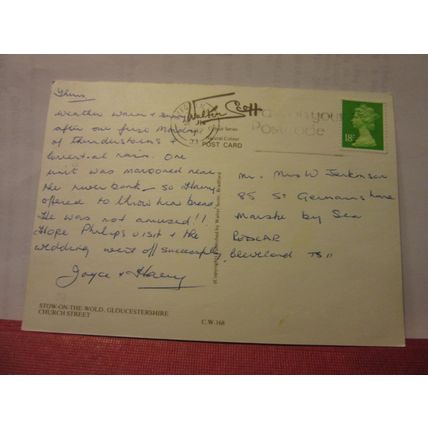 Thurs
Weather warm + sunny
after our first Monday
of thunderstorms +
torrential rain. One
unit was marooned near
the river bank – so Harry
offered to throw him bread
He was not amused!!
Hope Philip's visit + the
wedding went off successfully.
Joyce + Harry
STOW-ON-THE-WOLD, GLOUCESTERSHIRE
CHURCH STREET
C.W.168
Walter Scott
Natural Colour
POST CARD
©Copyright Published by Walter Scott, Bradford
your
Postcode
18P
Mr. Mrs W Jenkinson
85 St Germains Lane
Marske by Sea
REDCAR
Cleveland TS11